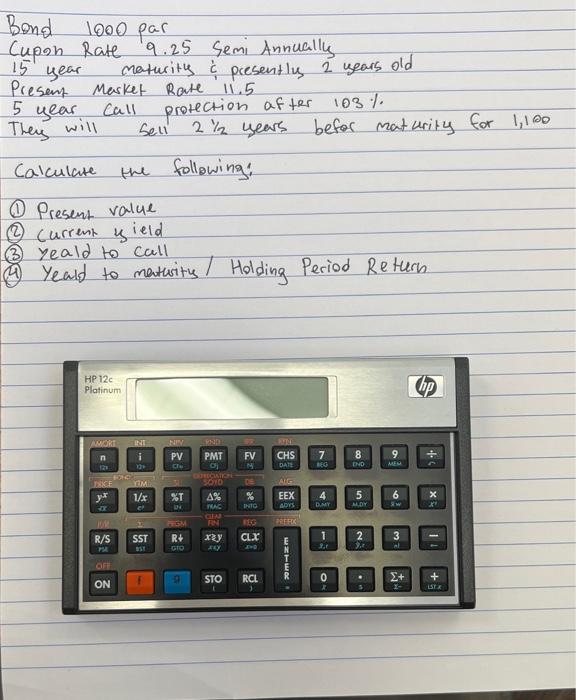 Bond 1000 par
Cupon Rate 9.25 Semi Annually
15 year maturity & presently 2 years old
Present Market Rate 11.5
5 year Call protection after 103 %.
They will Sell 2 1/2 years befor maturity for 1,100
Calculate the following:
① Present value
② Current yield
③ Yeald to Call
④ Yeald to maturity / Holding Period Return
HP 12c
Platinum
hp
AMORT INT NPV RND IRR RPN
n i PV PMT FV CHS 7 8 9 ÷
12x 12÷ CFo CFj Nj DATE BEG END MEM
BOND DEPRECIATION
PRICE YTM SL SOYD DB ALG
yx 1/x %T Δ% % EEX 4 5 6 ×
√x ex LN FRAC INTG ΔDYS D.MY M.DY x̄w x²
CLEAR
P/R Σ PRGM FIN REG PREFIX
R/S SST R↓ x≷y CLX ENTER 1 2 3 −
PSE BST GTO x≤y x=0 x̂,r ŷ,r n!
OFF
ON f g STO RCL 0 . Σ+ +
( ) = x̄ s Σ- LST x